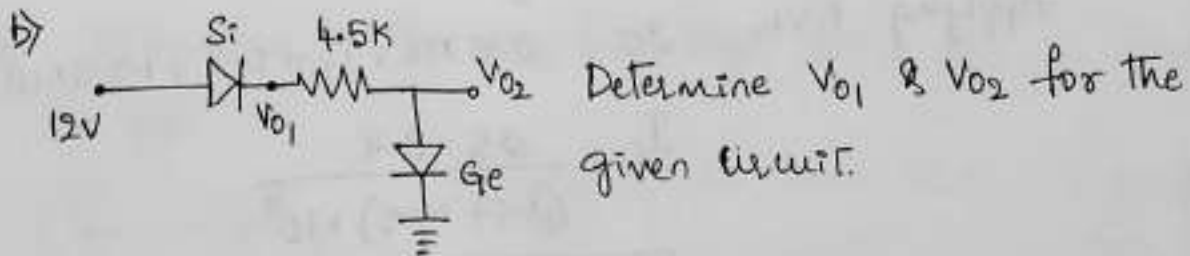 b)
Si 4.5K
12V V01 V02 Determine V01 & V02 for the
Ge given circuit.